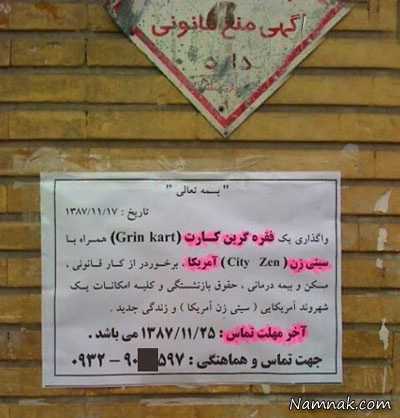 آگهی منع قانونی
دارد
" بسمه تعالی "
تاریخ : ۱۳۸۷/۱۱/۱۷
واگذاری یک فقره گرین کارت (Grin kart) همراه با
سیتی زن ( City Zen ) آمریکا . برخوردار از کار قانونی ،
مسکن و بیمه درمانی ، حقوق بازنشستگی و کلیه امکانات یک
شهروند آمریکایی ( سیتی زن آمریکا ) و زندگی جدید .
آخر مهلت تماس : ۱۳۸۷/۱۱/۲۵ می باشد .
جهت تماس و هماهنگی : ۵۹۷ ۹۰ – ۰۹۳۲
Namnak.com